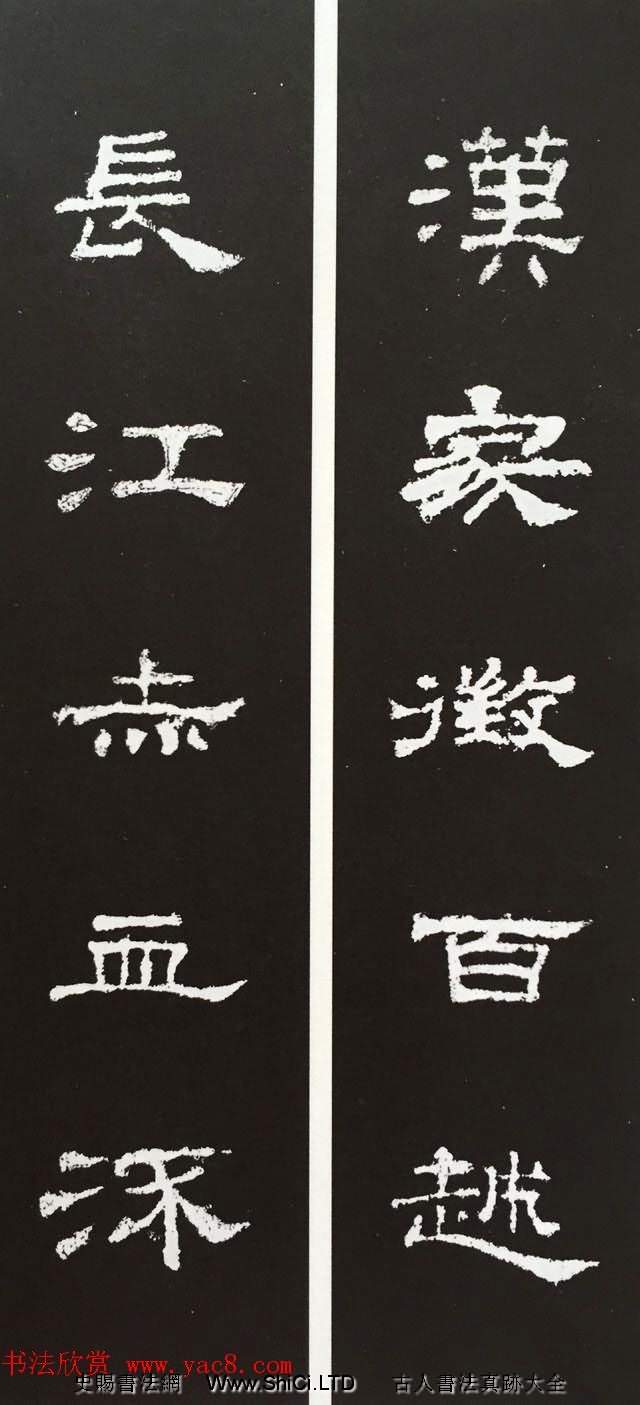 漢家徵百越
長江赤血
书法欣赏 www.yac8.com
史賜書法網 Www.ShiCi.LTD 古人書法真跡大全